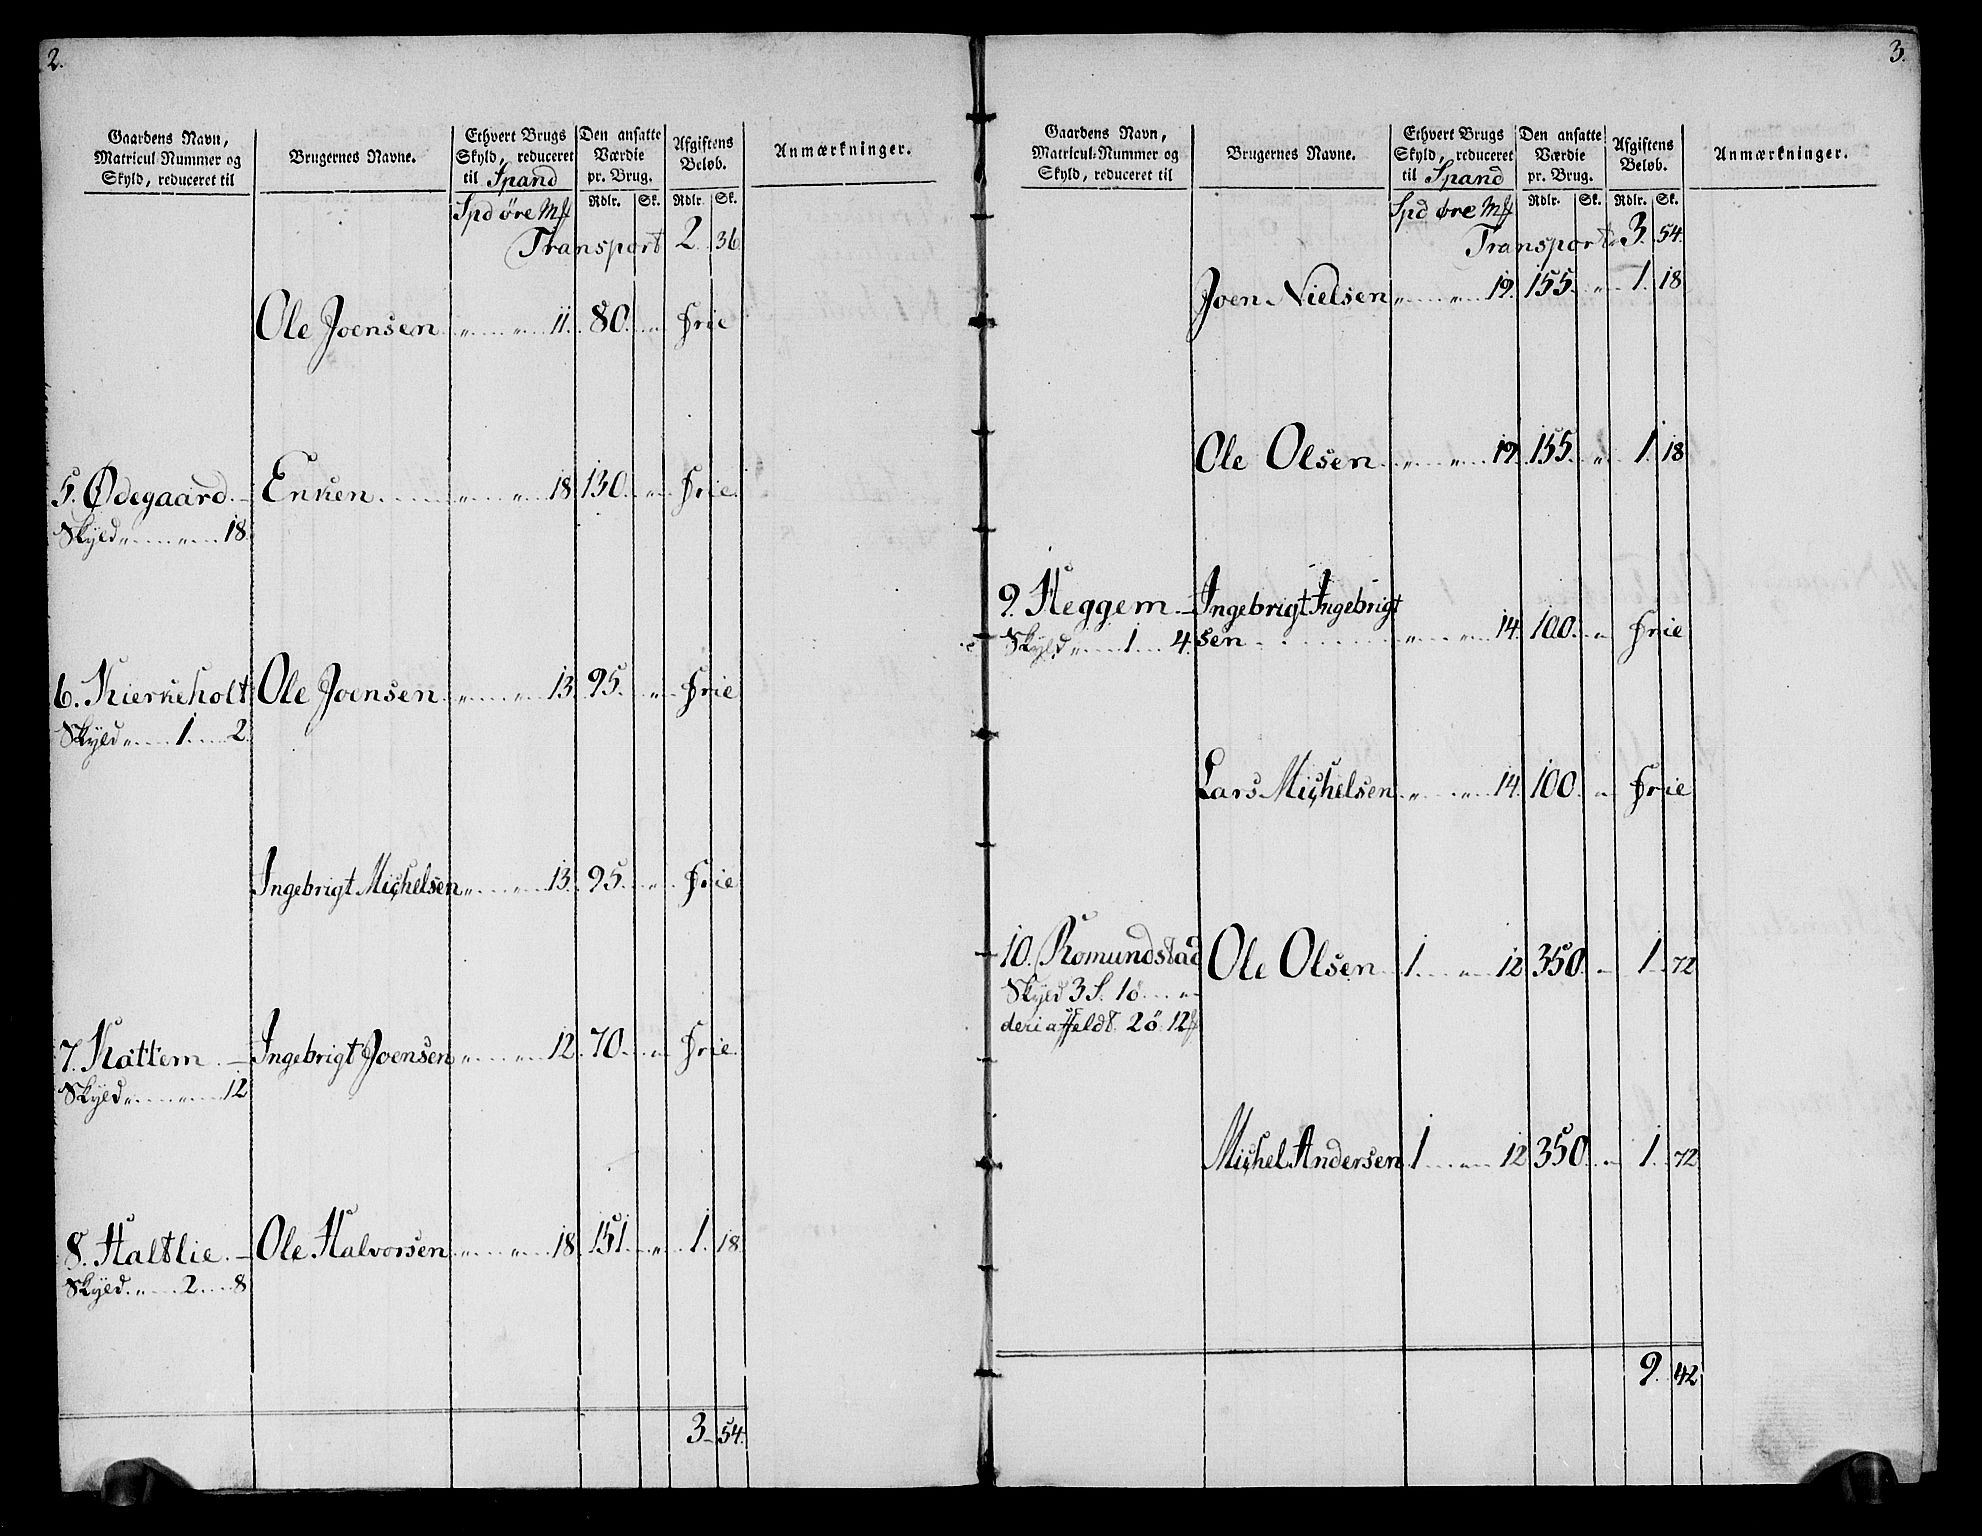 2.
Gaardens Navn, Matricul-Nummer og Skyld, reduceret til
Brugernes Navne.
Ethvert Brugs Skyld, reduceret til Spand
Den ansatte Værdie pr. Brug.
Afgiftens Beløb.
Anmærkninger.
Spd øre Mk
Rdlr. Sk. Rdlr. Sk.
Transport 2. 36
Ole Joensen „ „ 11. 80. „ frie
5. Ødegaard. — Enken „ „ 18 130. „ frie
Skyld „ „ 18.
6. Kierkeholt Ole Joensen „ „ 13. 95. „ frie
Skyld „ 1. 2.
Ingebrigt Michelsen „ „ 13. 95. „ frie
7. Kattem. — Ingebrigt Joensen „ „ 12 70. „ frie
Skyld „ „ 12
8. Haltlie. — Ole Halvorsen „ „ 18. 151. „ 1. 18.
Skyld „ 2. 8
3. 54.
3.
Gaardens Navn, Matricul-Nummer og Skyld, reduceret til
Brugernes Navne.
Ethvert Brugs Skyld, reduceret til Spand
Den ansatte Værdie pr. Brug.
Afgiftens Beløb.
Anmærkninger.
Spd øre Mk
Rdlr. Sk. Rdlr. Sk.
Transport. 3. 54.
Joen Nielsen „ „ 19. 155. „ 1. 18
Ole Olsen „ „ 19. 155. „ 1. 18
9. Heggem. — Ingebrigt Ingebrigt
Skyld „ 1. 4. sen „ „ 14. 100. „ frie
Lars Michelsen „ „ 14. 100. „ frie
10. Romundstad Ole Olsen 1. „ 12 350. „ 1. 72
Skyld 3 S. 1ö „
deri affeldt. 2ö. 12
Michel Andersen 1. „ 12 350. „ 1. 72
9. 42